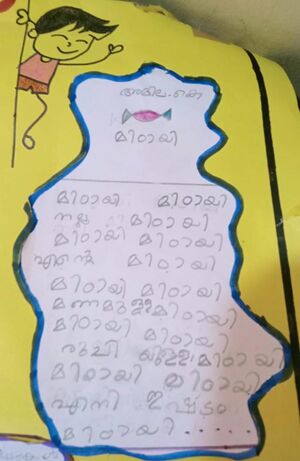 അമില.കെ
മിഠായി
മിഠായി മിഠായി
നല്ല മിഠായി
മിഠായി മിഠായി
എന്റെ മിഠായി
മിഠായി മിഠായി
മണമുള്ള മിഠായി
മിഠായി മിഠായി
രുചിയുള്ള മിഠായി
മിഠായി മിഠായി
എനി ഇഷ്ടം
മിഠായി ......